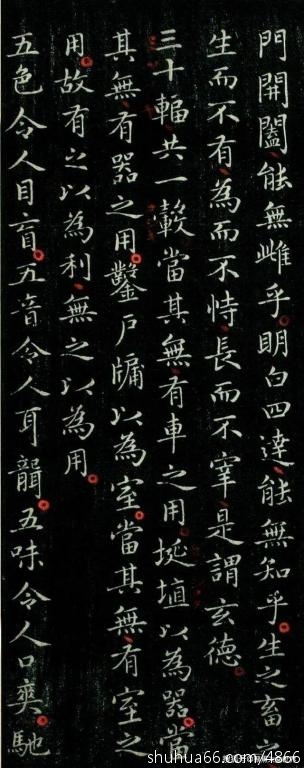 門開闔能無雌乎明白四達能無知乎生之畜之
生而不有為而不恃長而不宰是謂玄德
三十輻共一轂當其無有車之用埏埴以為器當
其無有器之用鑿戶牖以為室當其無有室之
用故有之以為利無之以為用
五色令人目盲五音令人耳聾五味令人口爽馳
shuhua66.com/4866